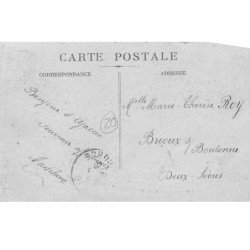 CARTE POSTALE
CORRESPONDANCE
ADRESSE
Bonjour d'
20
Melle Marie-Thérèse Rey
Brioux s/
Boutonne
Deux-Sèvres